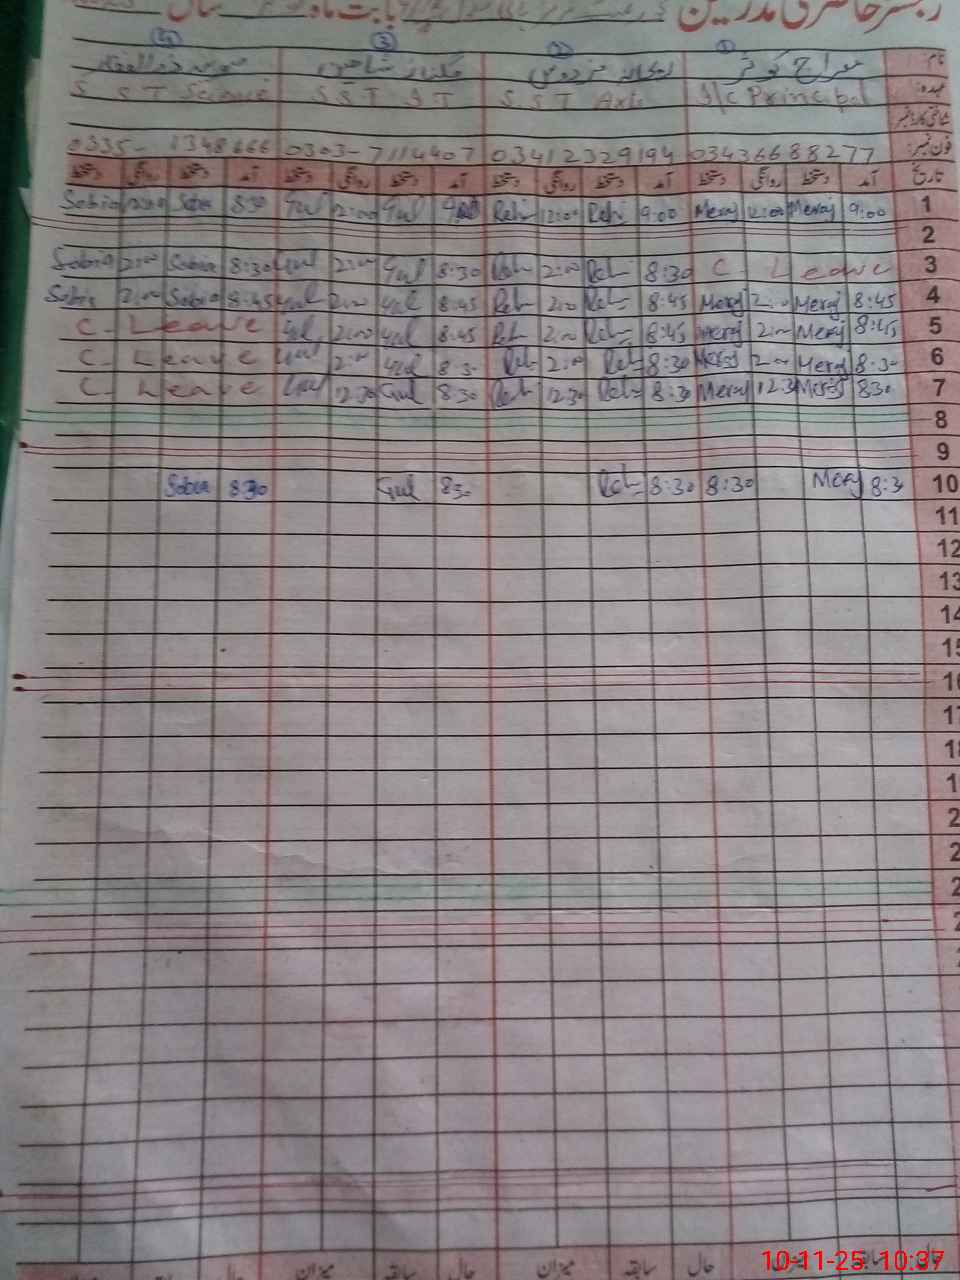 رجسٹر حاضری مدرسین بابت ماہ سال
① ② ③ ④
نام: معراج کوثر ریحانہ فردوس گلناز شاہین
عہدہ: I/C Principal S.S.T Arts S S T I T S S T Science
شناختی کارڈ نمبر
فون نمبر: 03436688277 03412329194 0303-7114407 0335-1348666
تاریخ آمد دستخط روانگی دستخط آمد دستخط روانگی دستخط آمد دستخط روانگی دستخط آمد دستخط روانگی دستخط
1 9:00 Meraj 12:00 Meraj 9:00 Reh 12:00 Reh 9:00 Gul 12:00 Gul 8:30 Sobia 12:00 Sobia
2
3 C Leave 8:30 Reh 2:00 Reh 8:30 Gul 2:00 Gul 8:30 Sobia 2:00 Sobia
4 8:45 Meraj 2:00 Meraj 8:45 Reh 2:00 Reh 8:45 Gul 2:00 Gul 8:45 Sobia 2:00 Sobia
5 8:45 Meraj 2:00 Meraj 8:45 Reh 2:00 Reh 8:45 Gul 2:00 Gul C- Leave
6 8:30 Meraj 2:00 Meraj 8:30 Reh 2:00 Reh 8:30 Gul 2:00 Gul C- Leave
7 8:30 Meraj 12:30 Meraj 8:30 Reh 12:30 Reh 8:30 Gul 12:30 Gul C- Leave
8
9
10 8:30 Meraj 8:30 8:30 Reh 8:30 Gul 8:30 Sobia
11
12
13
14
15
16
17
18
1
2
2
2
2
2
حال سابقہ میزان حال سابقہ میزان حال سابقہ میزان حال
10-11-25 10:37